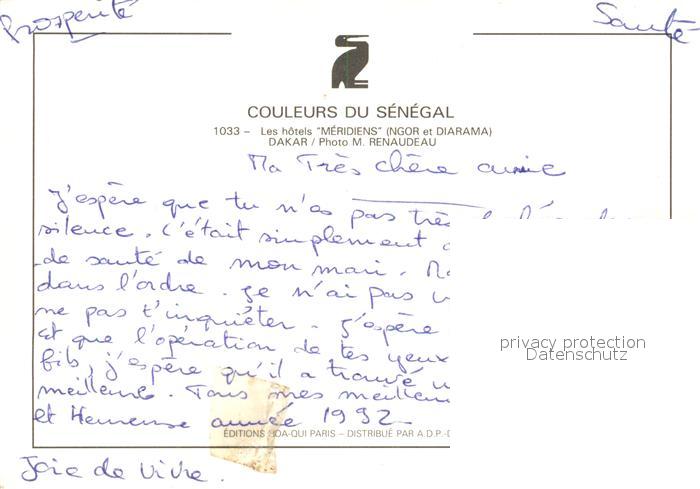 Prospérité
Santé
COULEURS DU SÉNÉGAL
1033 – Les hôtels "MÉRIDIENS" (NGOR et DIARAMA)
DAKAR / Photo M. RENAUDEAU
Ma Très chère amie
J'espère que tu n'es pas très
silence. C'était simplement
de santé de mon mari.
dans l'ordre. Je n'ai pas
ne pas t'inquiéter. J'espère
et que l'opération de tes yeux
fils, j'espère qu'il a trouvé
meilleure. Tous mes
et Heureuse année 1992
ÉDITIONS HOA-QUI PARIS – DISTRIBUÉ PAR A.D.P.-D
Joie de vivre.
privacy protection
Datenschutz